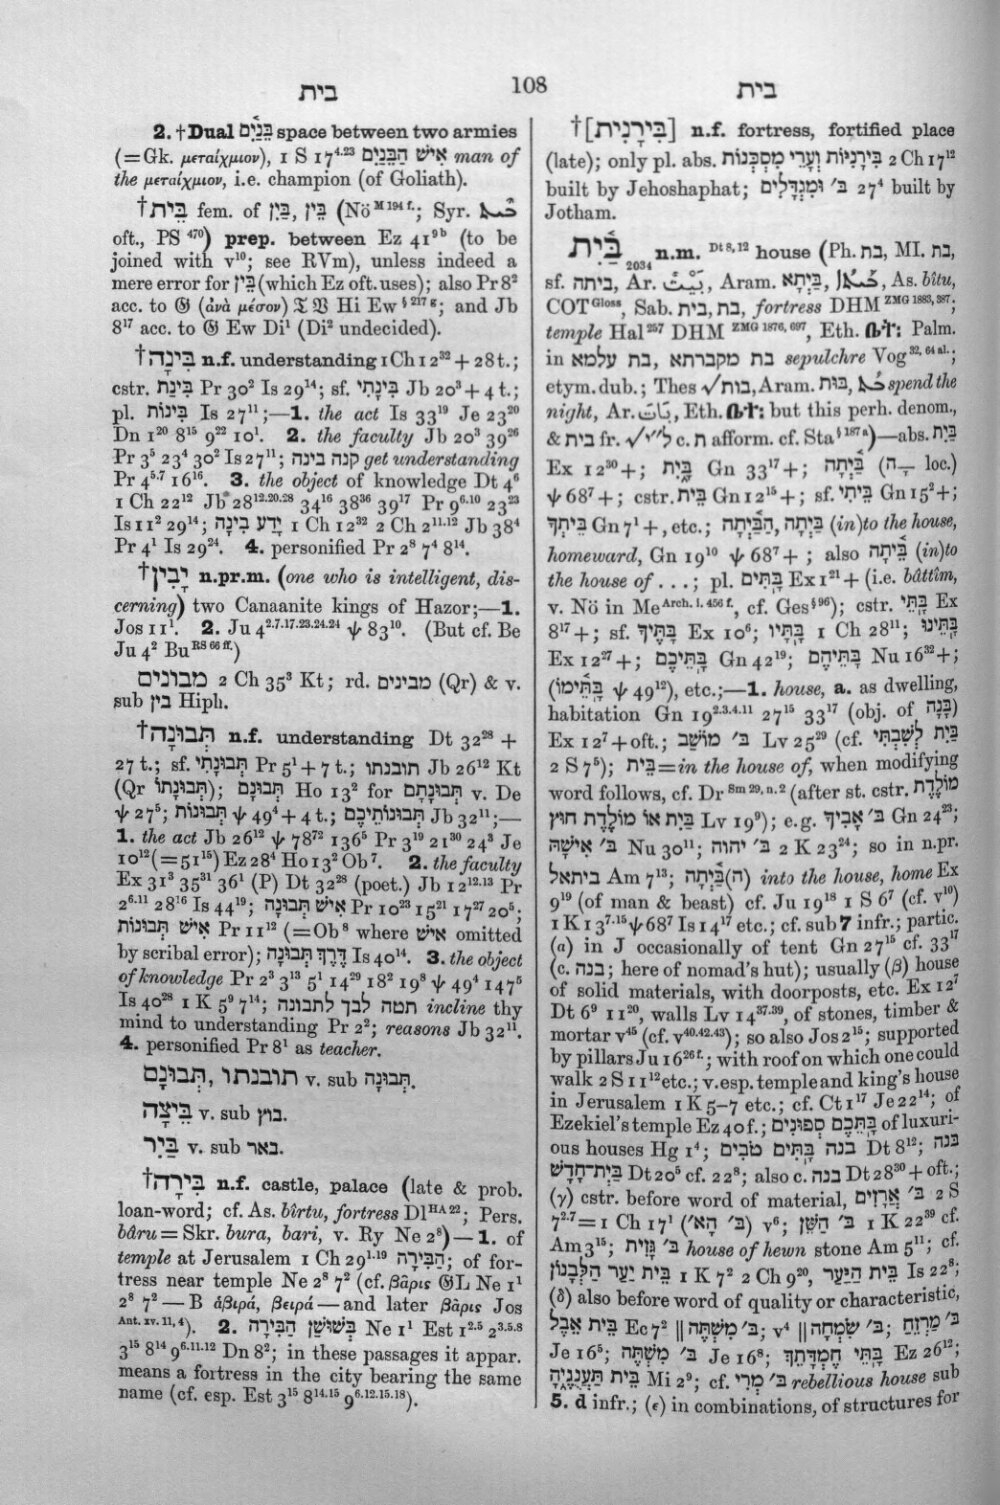 בית
108
בית
2. †Dual בֵּנַ֫יִם space between two armies
(=Gk. μεταίχμιον), 1 S 17⁴·²³ אִישׁ הַבֵּנַיִם man of
the μεταίχμιον, i.e. champion (of Goliath).
†בֵּית fem. of בֵּין, בַּיִן (Nö ᴹ ¹⁹⁴ ᶠ·; Syr.
oft., PS ⁴⁷⁰) prep. between Ez 41⁹ᵇ (to be
joined with v¹⁰; see RVm), unless indeed a
mere error for בֵּין (which Ez oft. uses); also Pr 8²
acc. to 𝔊 (ἀνὰ μέσον) 𝔗 𝔙 Hi Ew § ²¹⁷ ᵍ; and Jb
8¹⁷ acc. to 𝔊 Ew Di¹ (Di² undecided).
†בִּינָה n.f. understanding 1 Ch 12³² + 28 t.;
cstr. בִּינַת Pr 30² Is 29¹⁴; sf. בִּינָתִי Jb 20³ + 4 t.;
pl. בִּינוֹת Is 27¹¹;—1. the act Is 33¹⁹ Je 23²⁰
Dn 1²⁰ 8¹⁵ 9²² 10¹. 2. the faculty Jb 20³ 39²⁶
Pr 3⁵ 23⁴ 30² Is 27¹¹; קנה בינה get understanding
Pr 4⁵·⁷ 16¹⁶. 3. the object of knowledge Dt 4⁶
1 Ch 22¹² Jb 28¹²·²⁰·²⁸ 34¹⁶ 38³⁶ 39¹⁷ Pr 9⁶·¹⁰ 23²³
Is 11² 29¹⁴; יָדַע בִּינָה 1 Ch 12³² 2 Ch 2¹¹·¹² Jb 38⁴
Pr 4¹ Is 29²⁴. 4. personified Pr 2⁸ 7⁴ 8¹⁴.
†יָבִין n.pr.m. (one who is intelligent, dis-
cerning) two Canaanite kings of Hazor;—1.
Jos 11¹. 2. Ju 4²·⁷·¹⁷·²³·²⁴·²⁴ ψ 83¹⁰. (But cf. Be
Ju 4² Bu ᴿˢ ⁶⁶ ᶠᶠ·)
מבונים 2 Ch 35³ Kt; rd. מבינים (Qr) & v.
sub בין Hiph.
†תְּבוּנָה n.f. understanding Dt 32²⁸ +
27 t.; sf. תְּבוּנָתִי Pr 5¹ + 7 t.; תובנתו Jb 26¹² Kt
(Qr תְּבוּנָתוֹ); תְּבוּנָם Ho 13² for תְּבוּנָתָם v. De
ψ 27⁵; תְּבוּנוֹת ψ 49⁴ + 4 t.; תְּבוּנוֹתֵיכֶם Jb 32¹¹;—
1. the act Jb 26¹² ψ 78⁷² 136⁵ Pr 3¹⁹ 21³⁰ 24³ Je
10¹² (=51¹⁵) Ez 28⁴ Ho 13² Ob⁷. 2. the faculty
Ex 31³ 35³¹ 36¹ (P) Dt 32²⁸ (poet.) Jb 12¹²·¹³ Pr
2⁶·¹¹ 28¹⁶ Is 44¹⁹; אִישׁ תְּבוּנָה Pr 10²³ 15²¹ 17²⁷ 20⁵;
אִישׁ תְּבוּנוֹת Pr 11¹² (=Ob⁸ where אִישׁ omitted
by scribal error); דֶּרֶךְ תְּבוּנָה Is 40¹⁴. 3. the object
of knowledge Pr 2³ 3¹³ 5¹ 14²⁹ 18² 19⁸ ψ 49⁴ 147⁵
Is 40²⁸ 1 K 5⁹ 7¹⁴; תטה לבך לתבונה incline thy
mind to understanding Pr 2²; reasons Jb 32¹¹.
4. personified Pr 8¹ as teacher.
תְּבוּנָם, תובנתו v. sub תְּבוּנָה.
בֵּיצָה v. sub בוץ.
בַּיִר v. sub באר.
†בִּירָה n.f. castle, palace (late & prob.
loan-word; cf. As. bîrtu, fortress Dl ᴴᴬ ²²; Pers.
bâru = Skr. bura, bari, v. Ry Ne 2⁸)—1. of
temple at Jerusalem 1 Ch 29¹·¹⁹ הַבִּירָה; of for-
tress near temple Ne 2⁸ 7² (cf. βᾶρις 𝔊L Ne 1¹
2⁸ 7² — B ἀβιρά, βειρά — and later βᾶρις Jos
ᴬⁿᵗ· ˣᵛ· ¹¹, ⁴). 2. בְּשׁוּשַׁן הַבִּירָה Ne 1¹ Est 1²·⁵ 2³·⁵·⁸
3¹⁵ 8¹⁴ 9⁶·¹¹·¹² Dn 8²; in these passages it appar.
means a fortress in the city bearing the same
name (cf. esp. Est 3¹⁵ 8¹⁴·¹⁵ 9⁶·¹²·¹⁵·¹⁸).
†[בִּירָנִית] n.f. fortress, fortified place
(late); only pl. abs. בִּירָנִיּוֹת וְעָרֵי מִסְכְּנוֹת 2 Ch 17¹²
built by Jehoshaphat; ב׳ וּמִגְדָּלִים 27⁴ built by
Jotham.
בַּ֫יִת ₂₀₃₄ n.m. ᴰᵗ ⁸,¹² house (Ph. בת, MI. בת,
sf. ביתה, Ar. بَيْتٌ, Aram. בַּיְתָא, As. bîtu,
COT ᴳˡᵒˢˢ, Sab. בית, בת, fortress DHM ᶻᴹᴳ ¹⁸⁸³, ³⁸⁷;
temple Hal ²⁵⁷ DHM ᶻᴹᴳ ¹⁸⁷⁶, ⁶⁹⁷, Eth. ቤት: Palm.
in בת מקברתא, בת עלמא sepulchre Vog ³²,⁶⁴ ᵃˡ·;
etym. dub.; Thes √בות, Aram. בּוּת, spend the
night, Ar. بَاتَ, Eth. ቤተ: but this perh. denom.,
& בית fr. √ל״י c. ת afform. cf. Sta § ¹⁸⁷ ᵃ)—abs. בַּיִת
Ex 12³⁰ +; בָּיִת Gn 33¹⁷ +; בַּ֫יְתָה (ה‎ָ— loc.)
ψ 68⁷ +; cstr. בֵּית Gn 12¹⁵ +; sf. בֵּיתִי Gn 15² +;
בֵּיתְךָ Gn 7¹ +, etc.; בַּיְתָה, הַבַּ֫יְתָה (in)to the house,
homeward, Gn 19¹⁰ ψ 68⁷ + ; also בֵּ֫יתָה (in)to
the house of . . . ; pl. בָּתִּים Ex 1²¹ + (i.e. bâttîm,
v. Nö in Me ᴬʳᶜʰ· ⁱ· ⁴⁵⁶ ᶠ·, cf. Ges § ⁹⁶); cstr. בָּתֵּי Ex
8¹⁷ +; sf. בָּתֶּיךָ Ex 10⁶; בָּתָּיו 1 Ch 28¹¹; בָּתֵּינוּ
Ex 12²⁷ +; בָּתֵּיכֶם Gn 42¹⁹; בָּתֵּיהֶם Nu 16³² +;
(בָּתֵּ֫ימוֹ ψ 49¹²), etc.;—1. house, a. as dwelling,
habitation Gn 19²·³·⁴·¹¹ 27¹⁵ 33¹⁷ (obj. of בָּנָה)
Ex 12⁷ + oft.; ב׳ מוֹשַׁב Lv 25²⁹ (cf. בַּיִת לְשִׁבְתִּי
2 S 7⁵); בֵּית = in the house of, when modifying
word follows, cf. Dr ˢᵐ ²⁹, ⁿ· ² (after st. cstr. מוֹלֶדֶת
בַּיִת אוֹ מוֹלֶדֶת חוּץ Lv 19⁹); e.g. ב׳ אָבִיךְ Gn 24²³;
ב׳ אִישָׁהּ Nu 30¹¹; ב׳ יהוה 2 K 23²⁴; so in n.pr.
ביתאל Am 7¹³; (ה)בַּ֫יְתָה into the house, home Ex
9¹⁹ (of man & beast) cf. Ju 19¹⁸ 1 S 6⁷ (cf. v¹⁰)
1 K 13⁷·¹⁵ ψ 68⁷ Is 14¹⁷ etc.; cf. sub 7 infr.; partic.
(α) in J occasionally of tent Gn 27¹⁵ cf. 33¹⁷
(c. בנה; here of nomad's hut); usually (β) house
of solid materials, with doorposts, etc. Ex 12⁷
Dt 6⁹ 11²⁰, walls Lv 14³⁷·³⁹, of stones, timber &
mortar v⁴⁵ (cf. v⁴⁰·⁴²·⁴³); so also Jos 2¹⁵; supported
by pillars Ju 16²⁶ ᶠ·; with roof on which one could
walk 2 S 11¹² etc.; v. esp. temple and king's house
in Jerusalem 1 K 5–7 etc.; cf. Ct 1¹⁷ Je 22¹⁴; of
Ezekiel's temple Ez 40 f.; בָּתֵּכֶם סְפוּנִים of luxuri-
ous houses Hg 1⁴; בנה בָּתִּים טֹבִים Dt 8¹²; בנה
בַּיִת־חָדָשׁ Dt 20⁵ cf. 22⁸; also c. בנה Dt 28³⁰ + oft.;
(γ) cstr. before word of material, ב׳ אֲרָזִים 2 S
7²·⁷ = 1 Ch 17¹ (ב׳ הָא׳) v⁶; ב׳ הַשֵּׁן 1 K 22³⁹ cf.
Am 3¹⁵; ב׳ גָּזִית house of hewn stone Am 5¹¹; cf.
בֵּית יַעַר הַלְּבָנוֹן 1 K 7² 2 Ch 9²⁰, בֵּית הַיַּעַר Is 22⁸;
(δ) also before word of quality or characteristic,
בֵּית אֵבֶל Ec 7² || ב׳ מִשְׁתֶּה; v⁴ || ב׳ שִׂמְחָה; ב׳ מַרְזֵחַ
Je 16⁵; ב׳ מִשְׁתֶּה Je 16⁸; בָּתֵּי חֶמְדָּתֵךְ Ez 26¹²;
בֵּית תַּעֲנֻגֶיהָ Mi 2⁹; cf. ב׳ מְרִי rebellious house sub
5. d infr.; (ε) in combinations, of structures for